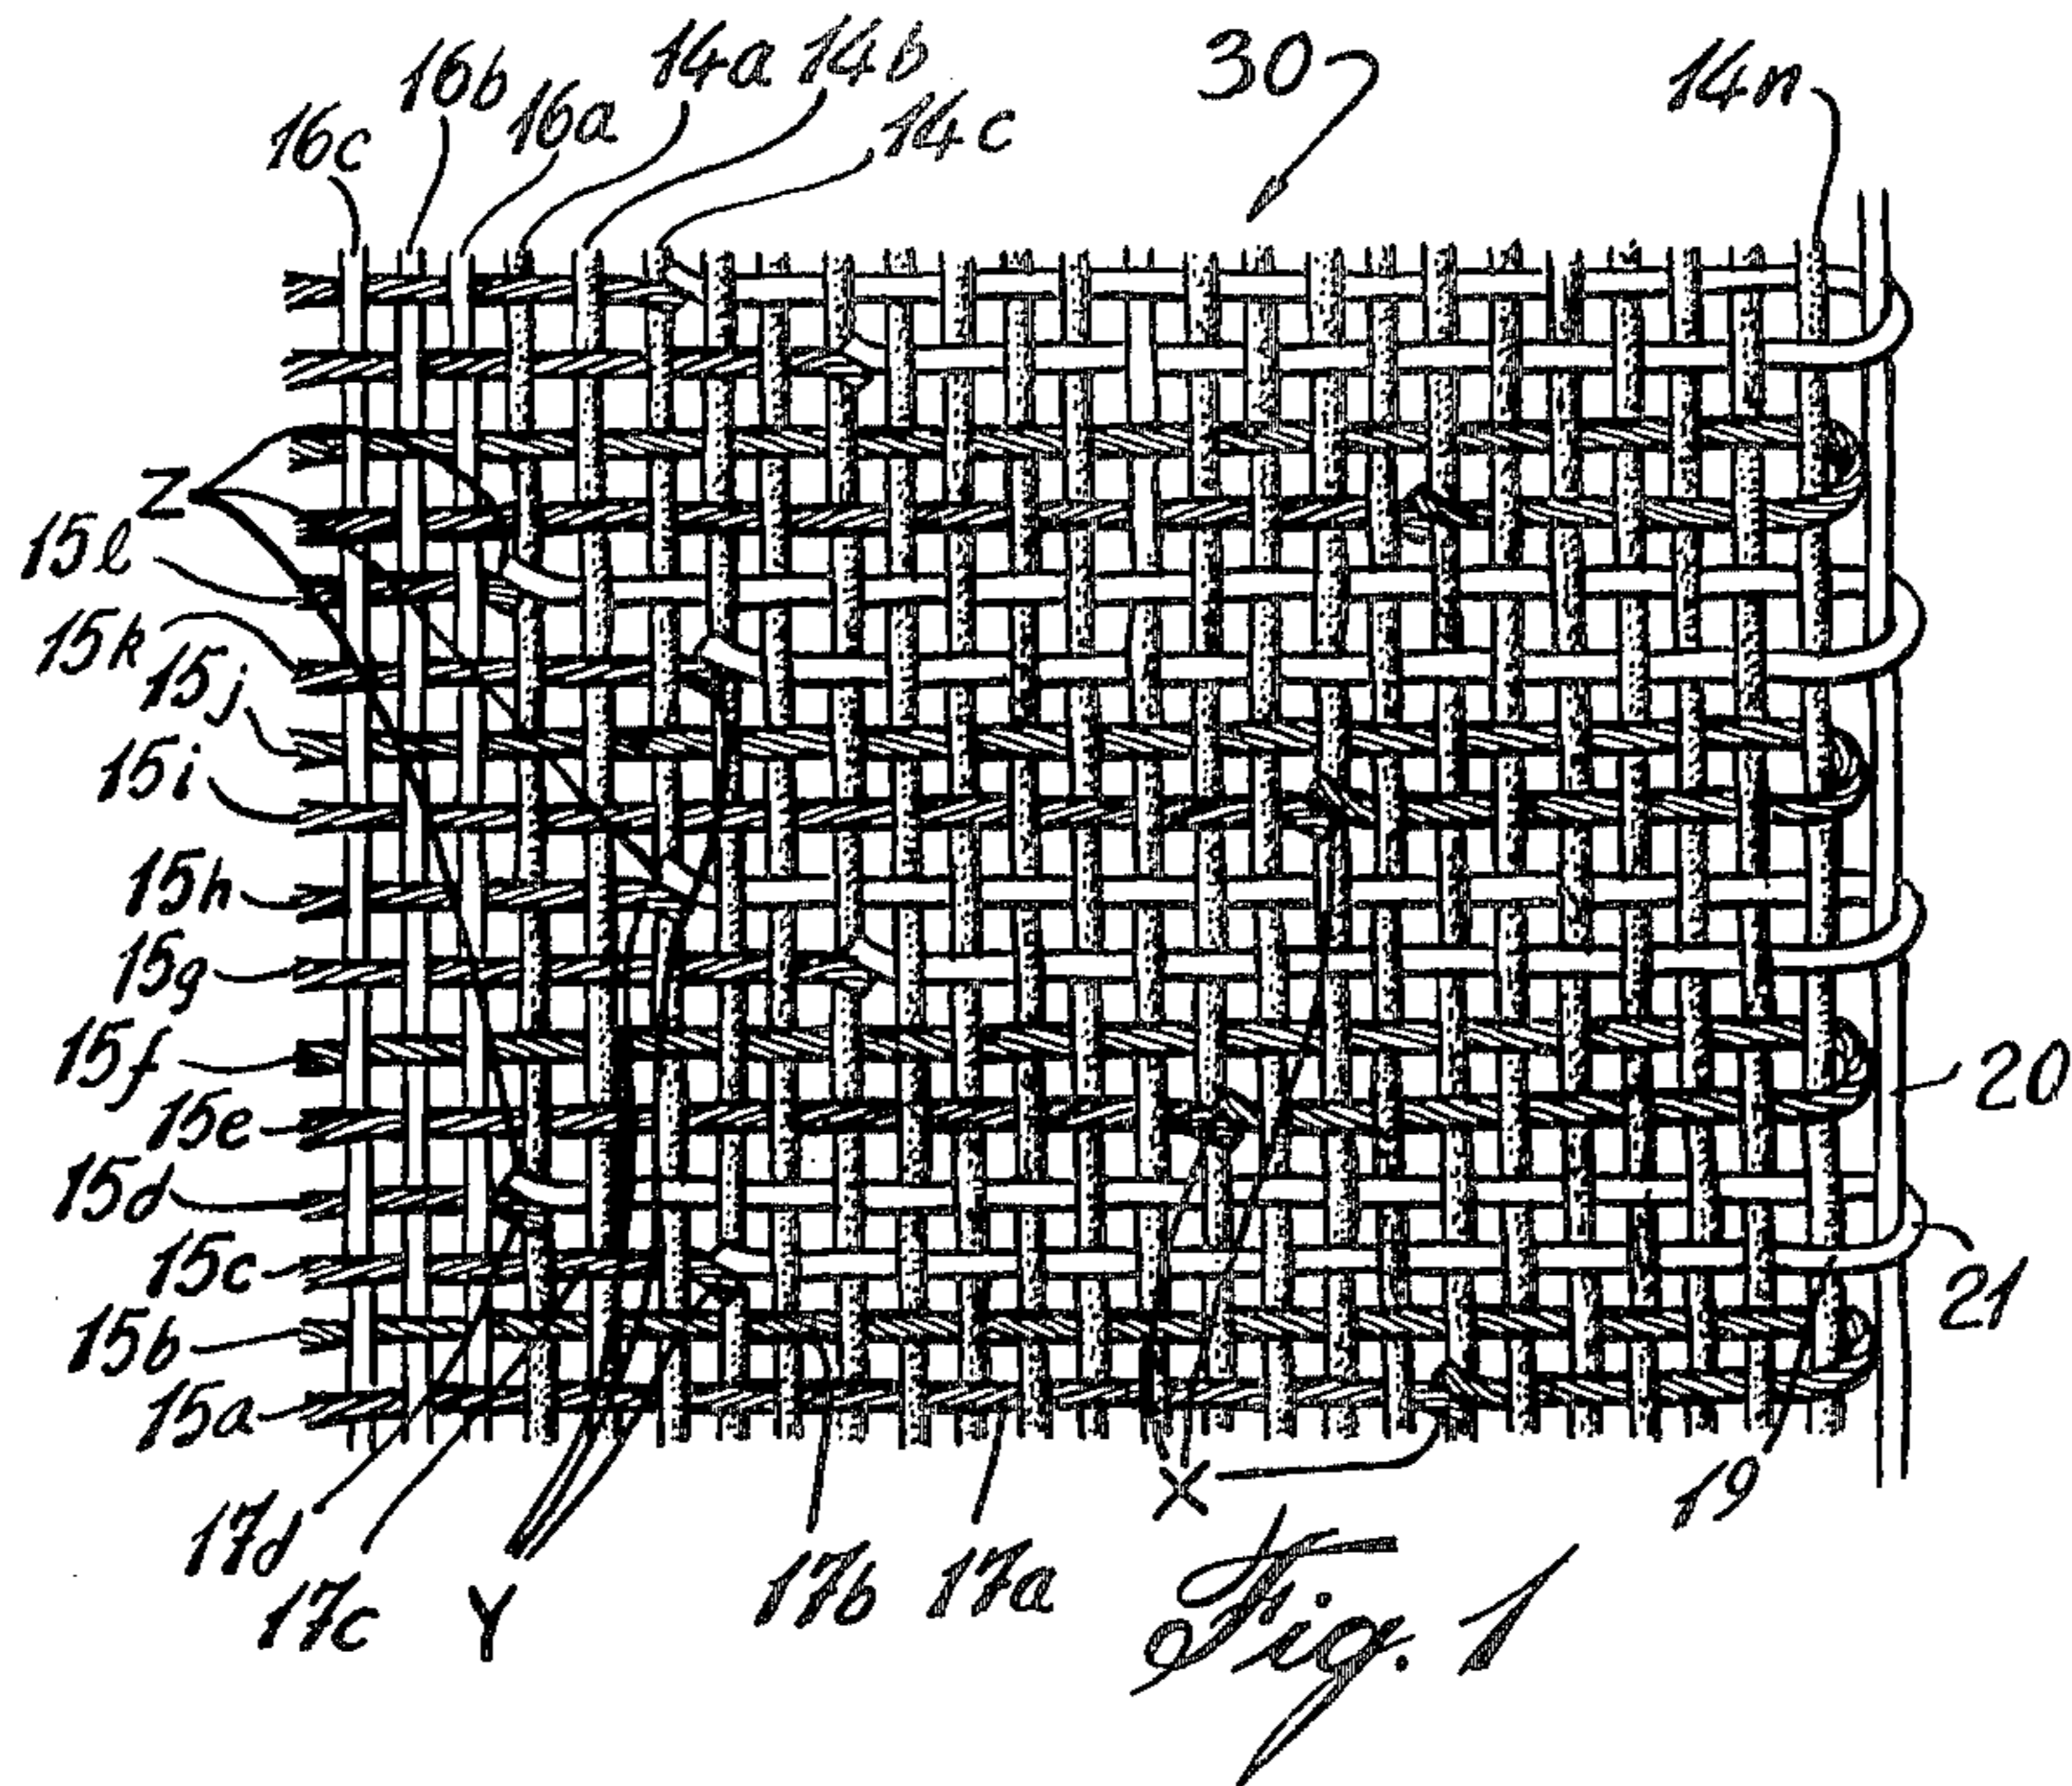 16c 16b 16a 14a 14b 14c 30 14n
Z
15l
15k
15j
15i
15h
15g
15f
15e
15d
15c
15b
15a
20
21
19
17d 17c Y 17b 17a X
Fig. 1